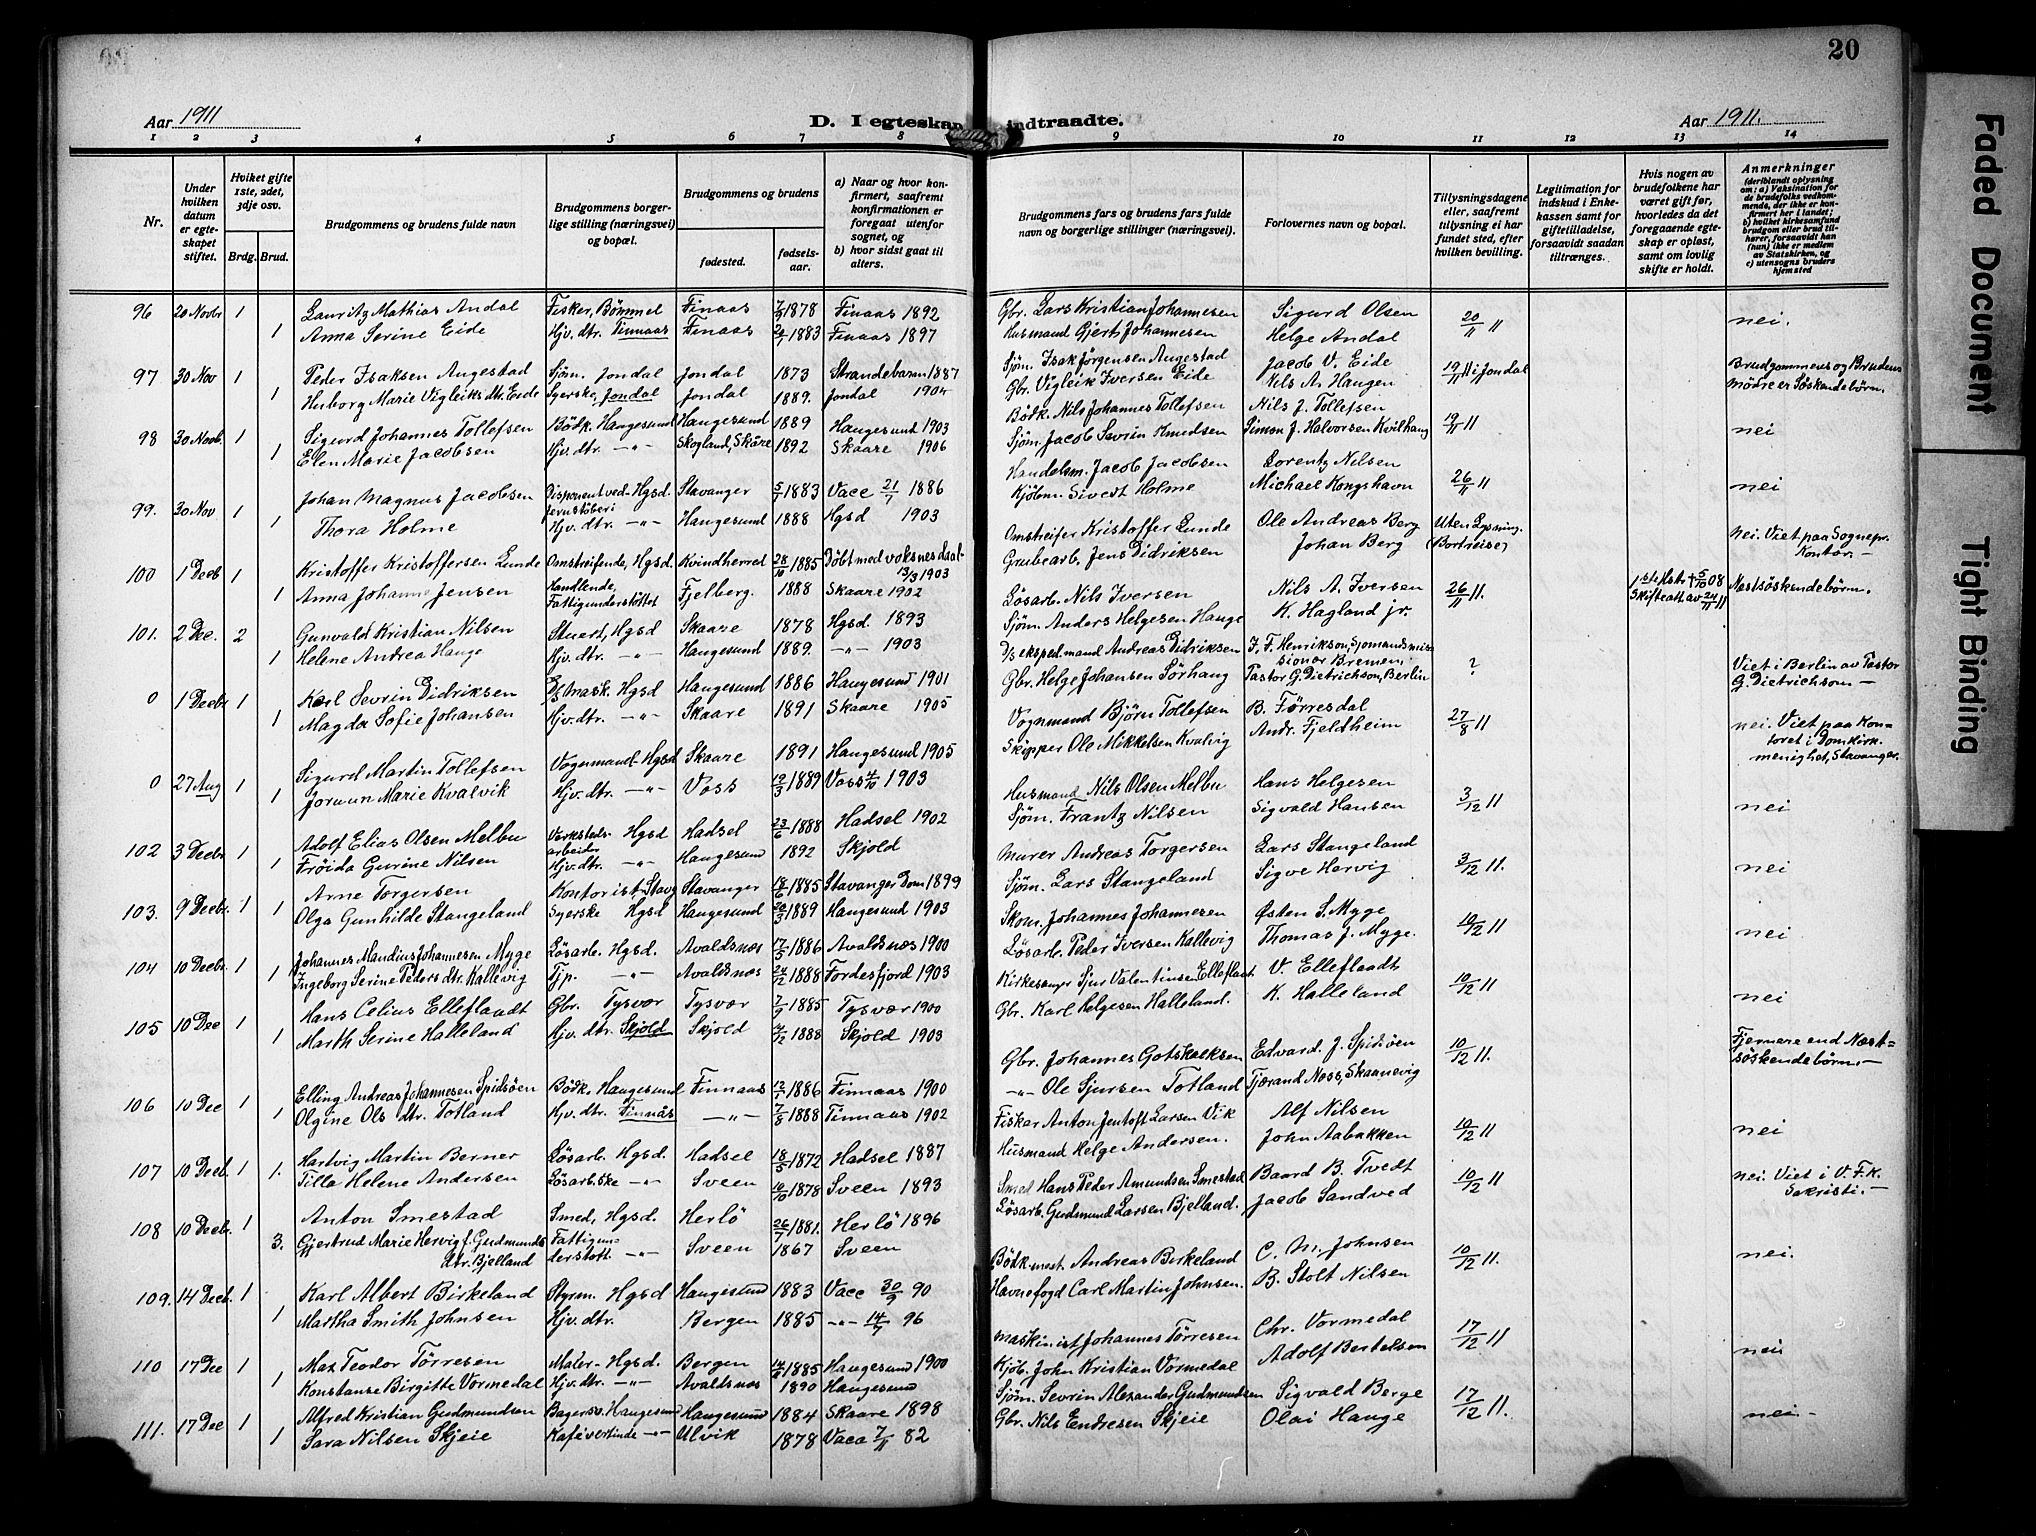 20
Aar 1911
D. I egteskap indtraadte.
Aar 1911.
1 2 3 4 5 6 7 8 9 10 11 12 13 14
Nr.
Under hvilken datum er egteskapet stiftet.
Hviket gifte 1ste, 2det, 3dje osv.
Brdg. Brud.
Brudgommens og brudens fulde navn
Brudgommens borgerlige stilling (næringsvei) og bopæl.
Brudgommens og brudens
fødested.
fødselsaar.
a) Naar og hvor konfirmert, saafremt konfirmationen er foregaaet utenfor sognet, og
b) hvor sidst gaat til alters.
Brudgommens fars og brudens fars fulde navn og borgerlige stillinger (næringsvei).
Forlovernes navn og bopæl.
Tillysningsdagene eller, saafremt tillysning ei har fundet sted, efter hvilken bevilling.
Legitimation for indskud i Enkekassen samt for giftetilladelse, forsaavidt saadan tiltrænges.
Hvis nogen av brudefolkene har været gift før, hvorledes da det foregaaende egteskap er opløst, samt om lovlig skifte er holdt.
Anmerkninger (deriblandt oplysning om: a) Vaksination for de brudefolks vedkommende, der ikke er konfirmert her i landet; b) hvilket kirkesamfund brudgom eller brud tilhører, forsaavidt han (hun) ikke er medlem av Statskirken, og c) utensogns bruders hjemsted
96 20 Novbr 1 Lauritz Mathias Andal Fisker, Bömmel Finaas 7/3 1878 Finaas 1892 Gbr. Lars Kristian Johannesen Sigurd Olsen 20/11 11 nei.
1 Anna Serine Eide Hjv. dtr. Finnaas Finaas 1883 Finaas 1897 Husmand Gjert Johannesen Helge Andal
97 30 Nov 1 Peder Isaksen Augestad Sjöm. Jondal Jondal 1873 Strandebarm 1887 Sjöm. Isak Jørgensen Augestad Jacob V. Eide 19/11 11 i Jondal Brudgommens og Brudens
1 Huborg Marie Vigleiks dtr. Eide Syerske, Jondal Jondal 1889. Jondal 1904 Gbr. Vigleik Iversen Eide Nils A. Haugen mödre er Söskendebörn.
98 30 Novb. 1 Sigurd Johannes Tollefsen Bödk. Haugesund Haugesund 1889 Haugesund 1903 Bödk. Nils Johannes Tollefsen Nils J. Tollefsen 19/11 11 nei
1 Elen Marie Jacobsen Hjv. dtr. -"- Skogland, Skåre 1892 Skaare 1906 Sjöm. Jacob Sevrin Knudsen Simon J. Halvorsen Kvilhaug
99. 30 Nov 1 Johan Magnus Jacobsen Disponent ved Hgsd. jernstöberi Stavanger 5/1 1883 Vacc 21/7 1886 Handelsm. Jacob Jacobsen Lorentz Nilsen 26/11 11 nei
1 Thora Holme Hjv. dtr. -"- Haugesund 1888 Hgsd 1903 Kjöbm. Sivert Holme Michael Kongshavn
100 1 Decb 1 Kristoffer Kristoffersen Lunde Omstreifende, Hgsd. Kvindherred 28/10 1885 Döbt med voksnes daab 13/3 1903 Omstreifer Kristoffer Lunde Ole Andreas Berg Uten Lysning. nei. Viet paa Sognepr. Kontor. -
1 Anna Johanne Jensen Handlende, Fattigunderstöttet Fjelberg. 1888 Skaare 1902 Grubearb. Jens Didriksen Johan Berg (Bortreise)
101. 2 Dec. 2 Gunvald Kristian Nilsen Stuert, Hgsd Skaare 1878 Hgsd. 1893 Lösarb. Nils Iversen Nils A. Iversen 26/11 11. 1ste Hstr † 5/10 08 Skifteatt. av 24/11 11 Næstsöskendebörn.
1 Helene Andrea Hauge Hjv. dtr. -"- Haugesund 1889. -"- 1903 Sjöm. Anders Helgesen Hauge K. Hagland jr.
0 1 Decbr 1 Karl Sevrin Didriksen Hgsd Haugesund 1886 Haugesund 1901 D/S eksped.mand Andreas Didriksen J. F. Henrikson, Sjømandsmissionær Bremen. ? Viet i Berlin av Pastor G. Dietrichson -
1 Magda Sofie Johansen Hjv. dtr. -"- Skaare 1891 Skaare 1905 Gbr. Helge Johansen Sörhaug Pastor G. Dietrichson, Berlin
0 27 Aug 1 Sigurd Martin Tollefsen Vognmand Hgsd Skaare 1891 Haugesund 1905 Vognmand Björn Tollefsen B. Førresdal 27/8 11 nei. Viet paa Kontoret i Domkirk. menighet, Stavanger.
1 Jorunn Marie Kvalvik Hjv. dtr. -"- Voss 12/3 1889 Voss 4/10 1903 Skipper Ole Mikkelsen Kvalvig Andr. Fjeldheim
102 3 Decbr 1 Adolf Elias Olsen Melbu Verkstedsarbeider Hgsd Hadsel 23/6 1888 Hadsel 1902 Husmand Nils Olsen Melbu Hans Helgesen 3/12 11 nei
1 Fröida Gurine Nilsen Hjv. dtr. -"- Haugesund 1892 Skjold Sjöm. Frantz Nilsen Sigvald Hansen
103. 9 Decbr. 1 Arne Torgersen Kontorist Stavg Stavanger 18/6 1885 Stavanger Dom 1899 Murer Andreas Torgersen Lars Stangeland 3/12 11. nei
1 Olga Gunhilde Stangeland Syerske Hgsd Haugesund 20/3 1889 Haugesund 1903 Sjöm. Lars Stangeland Sigve Hervig
104 10 Decbr. 1 Johannes Mandius Johannesen Mygge Lösarb. Hgsd. Avaldsnæs 17/5 1886 Avaldsnæs 1900 Skom. Johannes Johannesen Østen S. Mygge 10/12 11 nei
1 Ingeborg Serine Peders dtr. Kallevig Tjp. -"- Avaldsnæs 24/12 1888 Fördesfjord 1903 Lösarb. Peder Iversen Kallevig Thomas J. Mygge.
105 10 Dec 1 Hans Celius Elleflaadt Gbr. Tysvær Tysvær 7/9 1885 Tysvær 1900 Kirkesanger Sjur Valentinsen Elleflaat V. Elleflaadt 10/12 11 nei
1 Marth Serine Halleland Hjv. dtr. Skjold Skjold 4/12 1888 Skjold 1903 Gbr. Karl Helgesen Halleland. K. Halleland
106 10 Dec 1 Elling Andreas Johannesen Spidsöen Bödk. Haugesund Finnaas 12/1 1886 Finnaas 1900 Gbr. Johannes Gotskalksen Edvard J. Spidsöen 10/12 11. Fjernere end Næstsöskendebörn. -
1 Olgine Ols dtr. Totland Hjv. dtr. Finnås -"- 7/8 1888 Finnaas 1902 -"- Ole Sjursen Totland Tjærand Næss, Skaanevig
107 10 Decb. 1 Hartvig Martin Berner Lösarb. Hgsd. Hadsel 18/5 1872 Hadsel 1887 Fisker Anton Jentoft Larsen Vik Alf Nilsen 10/12 11 nei
1. Tilla Helene Andersen Lösarb.ske -"- Sveen 10/10 1878 Sveen 1893 Husmand Helge Andersen. John Aabakken
108 10 Decbr. 1 Anton Smestad Smed, Hgsd. Herlö 26/7 1881. Herlö 1896 Smed Hans Peder Amundsen Smestad Baard B. Tvedt 10/12 11 nei. Viet i V. F. K. Sakristi. -
3. Gjertrud Marie Hervig f. Gudmunds dtr. Bjelland Fattigunderstøtt. -"- Sveen 1867 Sveen Lösarb. Gudmund Larsen Bjelland. Jacob Sandved
109. 14 Decb. 1 Karl Albert Birkeland Styrm. Hgsd Haugesund 1883 Vacc 30/9 90 Bödk.mest. Andreas Birkeland C. M. Johnsen 10/12 11. nei.
1 Martha Smith Johnsen Hjv. dtr. Bergen 1885 -"- 14/7 96 Havnefogd Carl Martin Johnsen. B. Stolt Nilsen
110 17 Dec 1 Max Teodor Törresen Maler - Hgsd. Bergen 1885 Haugesund 1900 Maskinist Johannes Törresen Chr. Vormedal 17/12 11 nei
1 Konstanse Birgitte Vormedal Hjv. dtr. -"- Avaldsnæs 1890 Haugesund Kjöb. John Kristian Vormedal Adolf Bertelsen
111. 17 Dec 1 Alfred Kristian Gudmundsen Bagersv. Haugesund Haugesund 1884 Skaare 1898 Sjöm. Sevrin Alexander Gudmundsen Sigvald Berge 17/12 11. nei -
1 Sara Nilsen Skjeie Kafévertinde -"- Ulvik 1878 Vacc 7/11 82 Gbr. Nils Endresen Skjeie Olai Hauge
Faded Document
Tight Binding